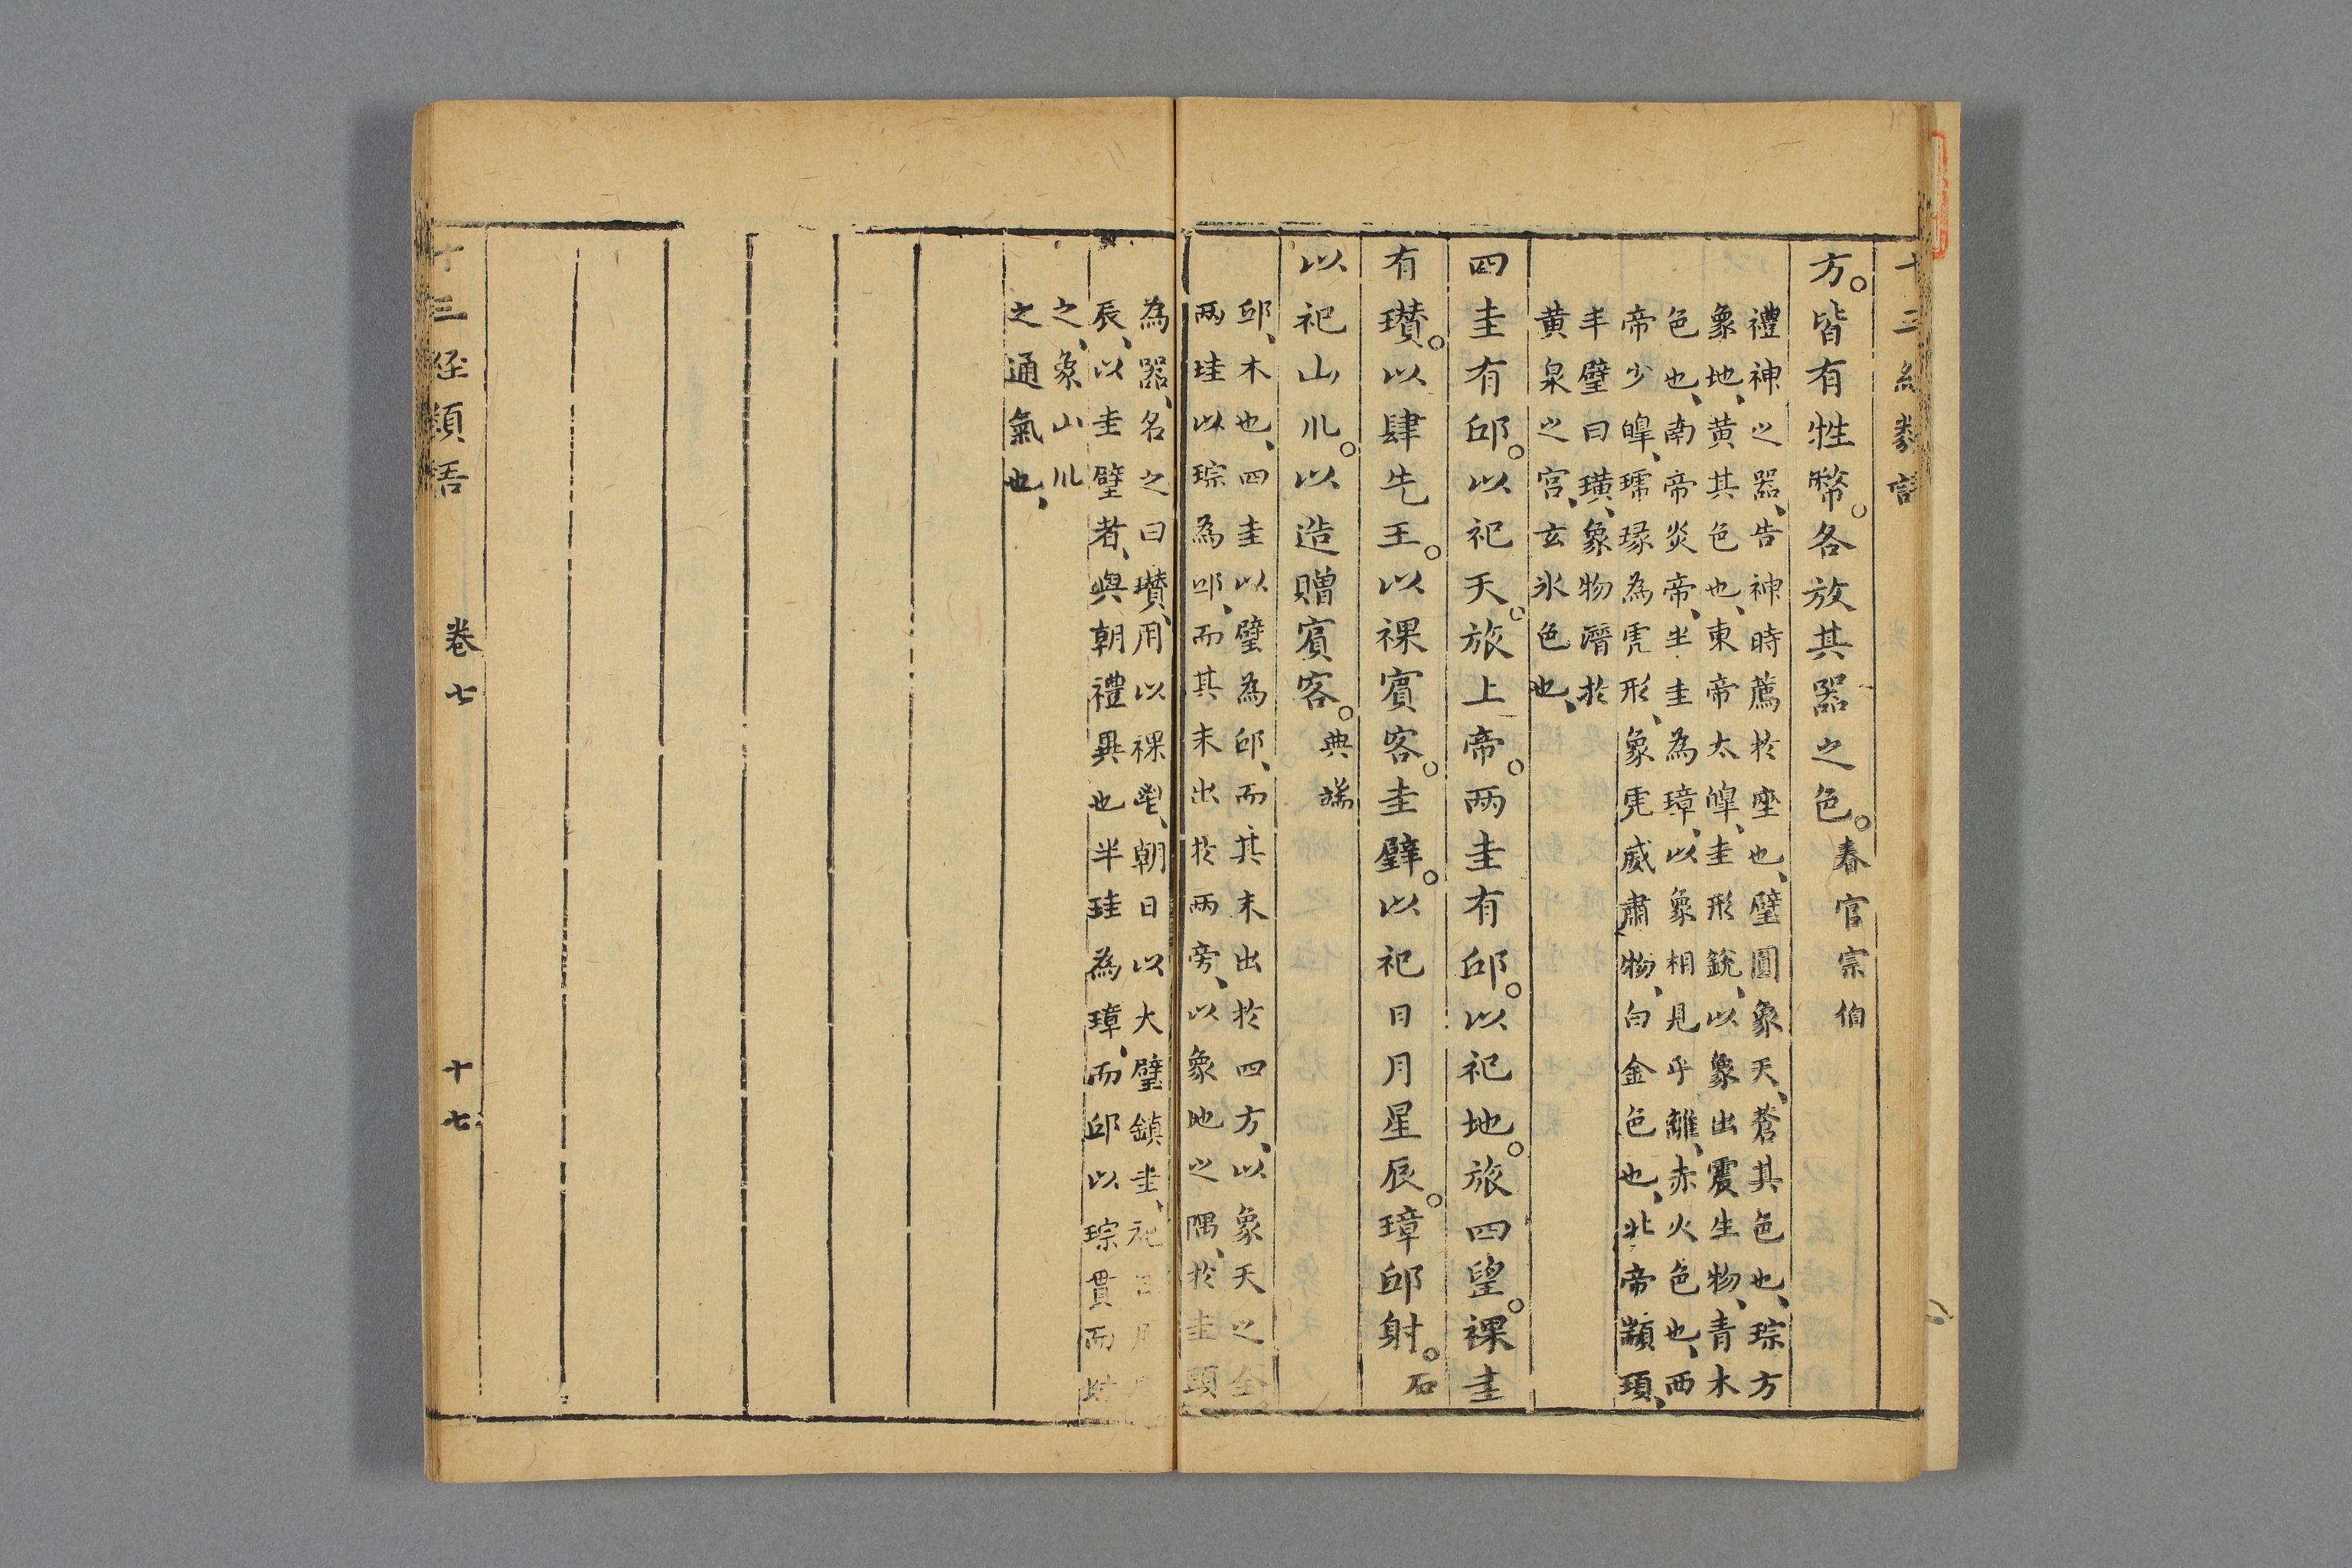 十三經類語
方。皆有牲幣。各放其器之色。春官宗伯
禮神之器、告神時薦於座也、璧圓象天、蒼其色也、琮方
象地、黃其色也、東帝太皞、圭形銳、以象出震生物、青木
色也、南帝炎帝、半圭為璋、以象相見乎離、赤火色也、西
帝少皞、琥瑑為虎形、象虎威肅物、白金色也、北帝顓頊、
半璧曰璜、象物潛於
黃泉之宮、玄氷色也、
四圭有邸。以祀天。旅上帝。兩圭有邸。以祀地。旅四望。祼圭
有瓚。以肆先王。以祼賓客。圭璧。以祀日月星辰。璋邸射。
以祀山川。以造贈賓客。典瑞
邸、木也、四圭以璧為邸、而其末出於四方、以象天之全
兩珪以琮為邸、而其末出於兩旁、以象地之隅、於圭頭
為器、名之曰瓚、用以祼鬯、朝日以大璧鎮圭、祀日月
辰、以圭璧者、與朝禮異也半珪為璋、而邸以琮貫而
之、象山川
之通氣也、
十三經類語 卷七 十七